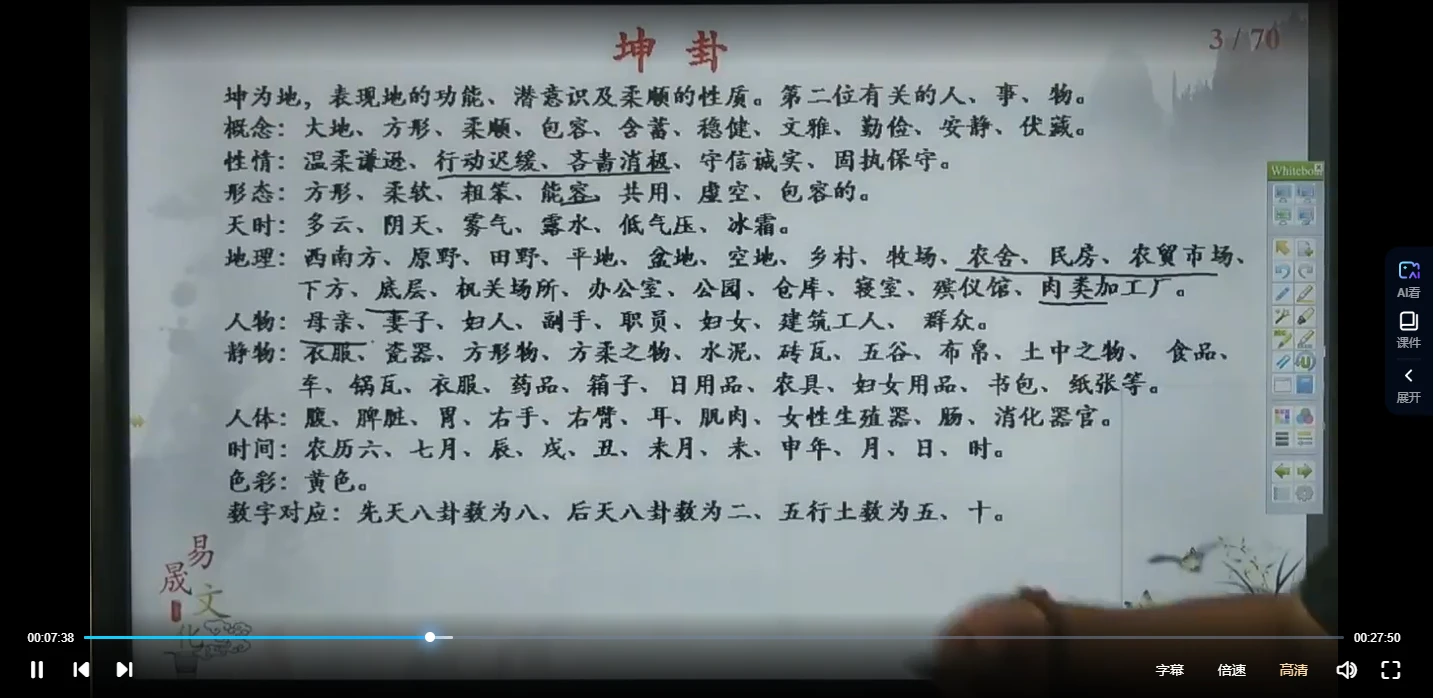 坤 卦
3 / 70
坤为地，表现地的功能、潜意识及柔顺的性质。第二位有关的人、事、物。
概念：大地、方形、柔顺、包容、含蓄、稳健、文雅、勤俭、安静、伏藏。
性情：温柔谦逊、行动迟缓、吝啬消极、守信诚实、固执保守。
形态：方形、柔软、粗笨、能容、共用、虚空、包容的。
天时：多云、阴天、雾气、露水、低气压、冰霜。
地理：西南方、原野、田野、平地、盆地、空地、乡村、牧场、农舍、民房、农贸市场、
下方、底层、机关场所、办公室、公园、仓库、寝室、殡仪馆、肉类加工厂。
人物：母亲、妻子、妇人、副手、职员、妇女、建筑工人、 群众。
静物：衣服、瓷器、方形物、方柔之物、水泥、砖瓦、五谷、布帛、土中之物、 食品、
车、锅瓦、衣服、药品、箱子、日用品、农具、妇女用品、书包、纸张等。
人体：腹、脾脏、胃、右手、右臂、耳、肌肉、女性生殖器、肠、消化器官。
时间：农历六、七月、辰、戌、丑、未月、未、申年、月、日、时。
色彩：黄色。
数字对应：先天八卦数为八、后天八卦数为二、五行土数为五、十。
易
晟
文
化
Whitebo
AI看
课件
展开
00:07:38
00:27:50
字幕
倍速
高清